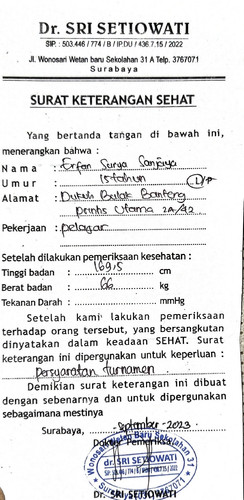 Dr. SRI SETIOWATI
SIP. : 503.446 / 774 / B / IP.DU / 436.7.15 / 2022
Jl. Wonosari Wetan baru Sekolahan 31 A Telp. 3767071
Surabaya
SURAT KETERANGAN SEHAT
Yang bertanda tangan di bawah ini,
menerangkan bahwa :
Nama : Erfan Surya Sanjaya
Umur : 15 tahun L/P
Alamat : Dukuh Bulak Banteng
Perintis Utama 2A/42
Pekerjaan : pelajar
Setelah dilakukan pemeriksaan kesehatan :
Tinggi badan : 169,5 cm
Berat badan : 66 kg
Tekanan Darah : mmHg
Setelah kami lakukan pemeriksaan
terhadap orang tersebut, yang bersangkutan
dinyatakan dalam keadaan SEHAT. Surat
keterangan ini dipergunakan untuk keperluan :
Persyaratan turnamen
Demikian surat keterangan ini dibuat
dengan sebenarnya dan untuk dipergunakan
sebagaimana mestinya
Surabaya, September - 2023
Dokter Pemeriksa
Wonosari Wetan Baru Sekolahan 31
dr. SRI SETIOWATI
SURABAYA
Dr. SRI SETIOWATI